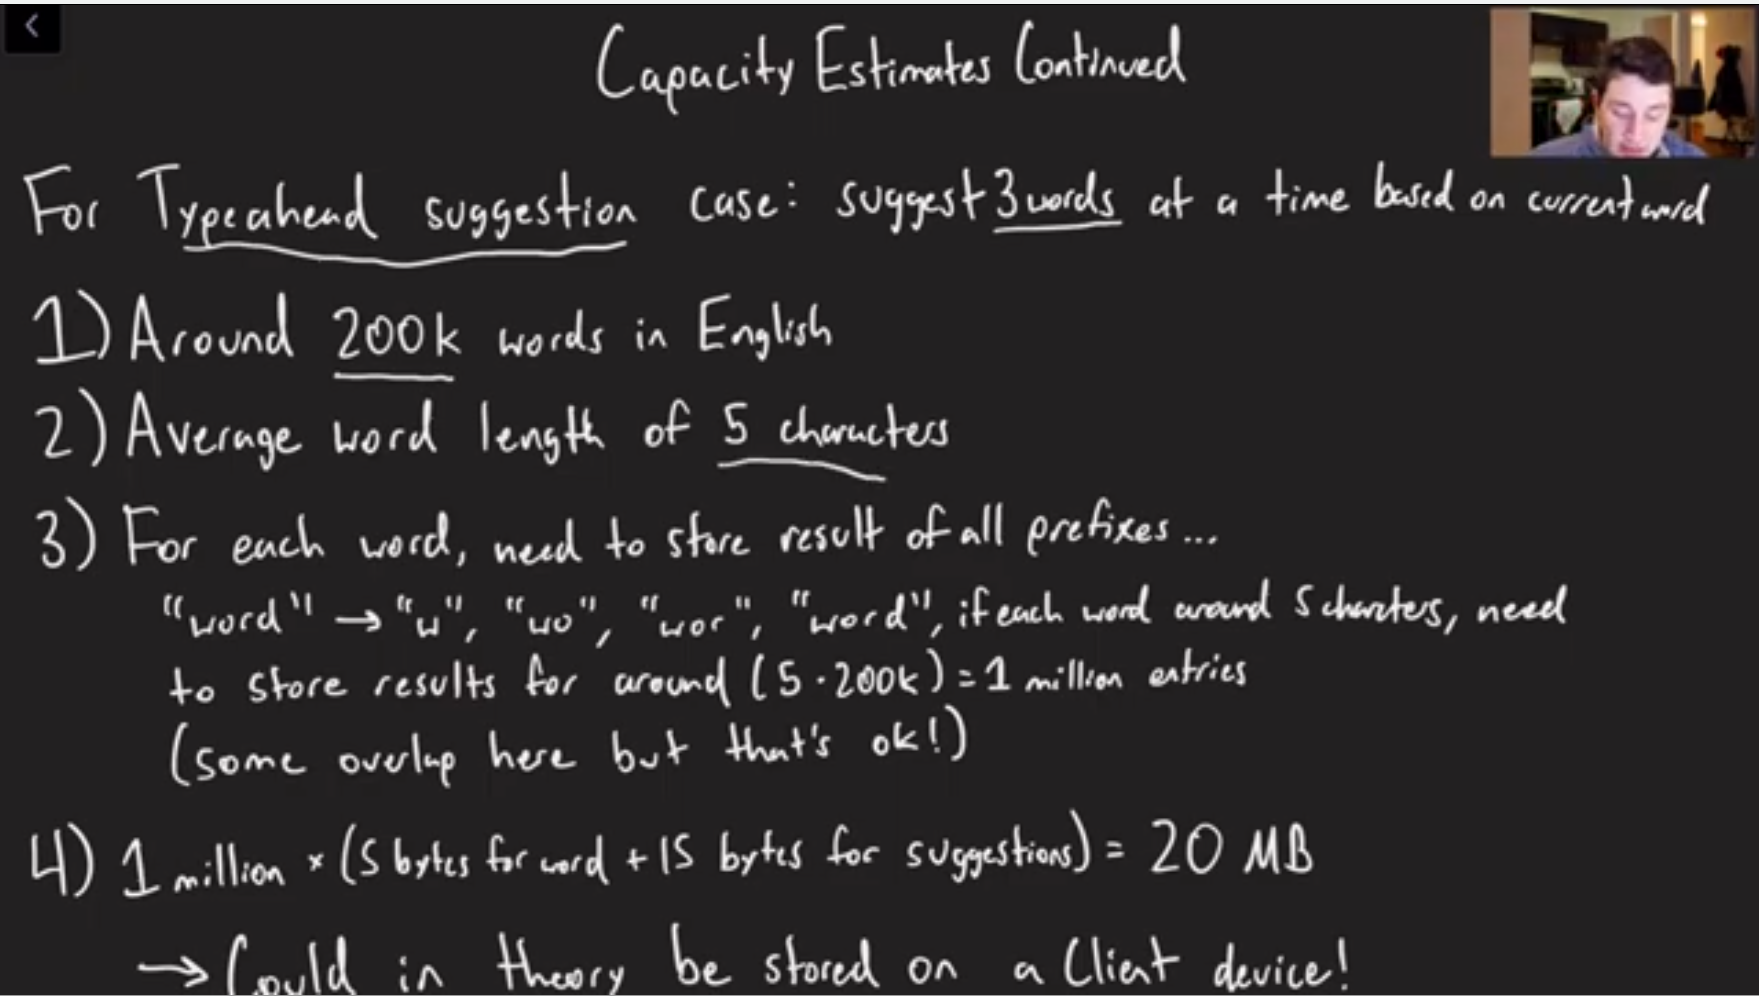 Capacity Estimates Continued
For Typeahead suggestion case: suggest 3 words at a time based on current word
1) Around 200k words in English
2) Average word length of 5 characters
3) For each word, need to store result of all prefixes...
"word" → "w", "wo", "wor", "word", if each word around 5 characters, need
to store results for around (5·200k) = 1 million entries
(some overlap here but that's ok!)
4) 1 million × (5 bytes for word + 15 bytes for suggestions) = 20 MB
→ Could in theory be stored on a Client device!